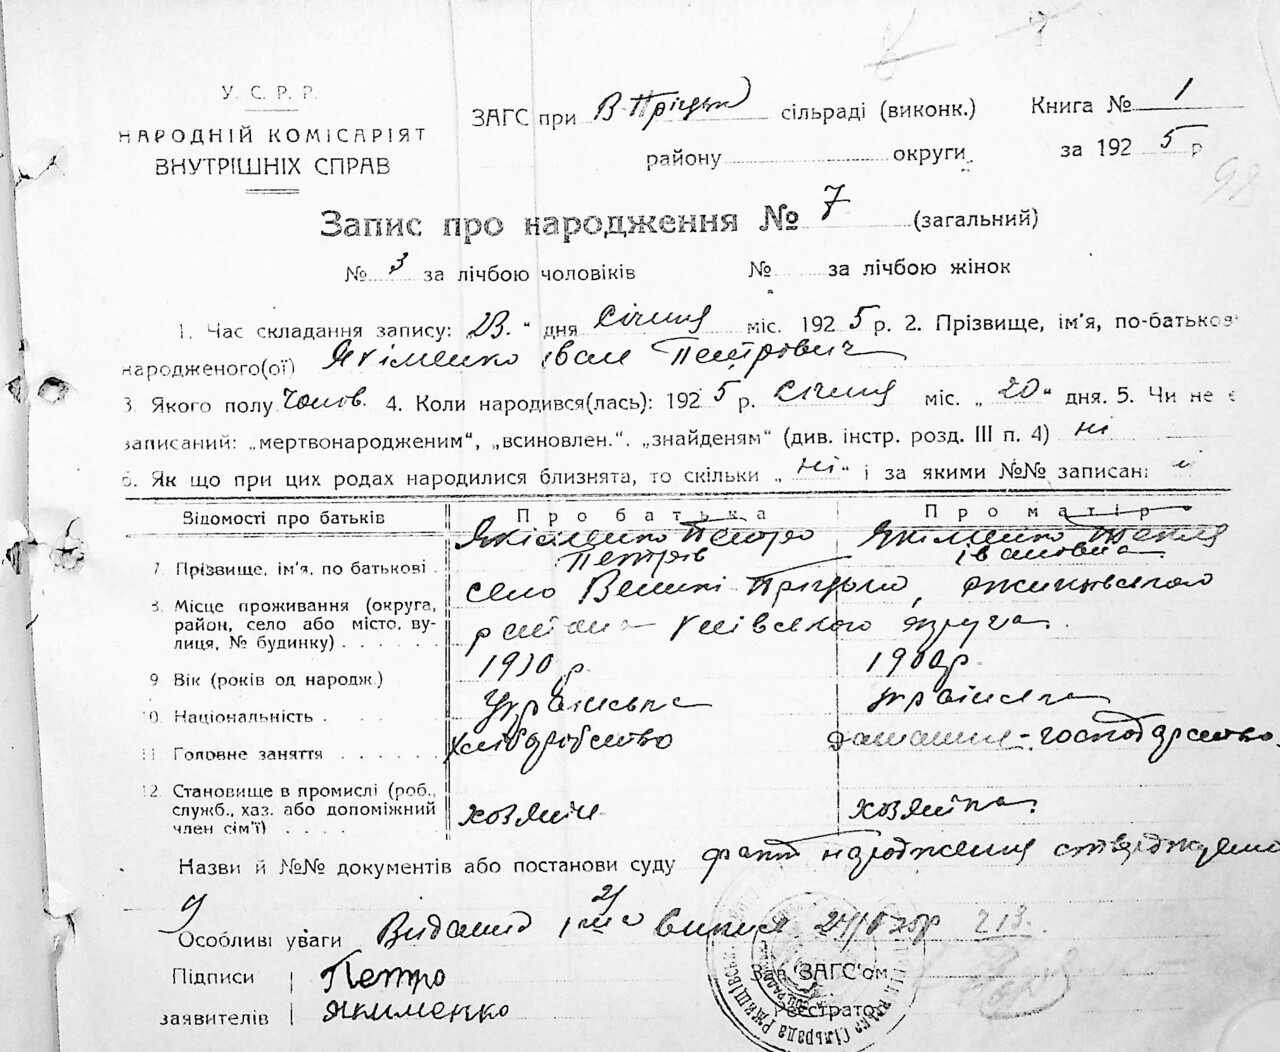 У. С. Р. Р.
НАРОДНІЙ КОМІСАРІЯТ
ВНУТРІШНІХ СПРАВ
ЗАГС при В-Пріцьк сільраді (виконк.) Книга № 1
району округи за 192 5 р
98
Запис про народження № 7 (загальний)
№ 3 за лічбою чоловіків № за лічбою жінок
1. Час складання запису: „23." дня Січня міс. 192 5 р. 2. Прізвище, ім'я, по-батьков
народженого(ої) Якіменко Іван Петрович
3. Якого полу Чолов. 4. Коли народився(лась): 192 5 р. Січня міс. „ 20 " дня. 5. Чи не є
записаний: „мертвонародженим", „всиновлен.". „знайденям" (див. інстр. розд. III п. 4) ні
6. Як що при цих родах народилися близнята, то скільки „ ні " і за якими №№ записані
Відомості про батьків Про батька Про матір
Якіменко Петро Якіменко Текля
7. Прізвище, ім'я, по батькові Петрів Івановна
8. Місце проживання (округа, село Великі Пріцьки, Ржищівського
район, село або місто, ву-
лиця, № будинку) района Київського округа.
9 Вік (років од народж.) 1910 р 1900 р.
10. Національність Українська українка
11 Головне заняття хліборобство домашня-господарство.
12. Становище в промислі (роб.,
служб., хаз. або допоміжний хозяїн хозяйка.
член сім'ї)
Назви й №№ документів або постанови суду факт народження стверджуємо
Особливі уваги Видано випис
Підписи Петро
заявителів Якименко
Зав. ЗАГС'ом
Реєстратор
Сільрада Ржищівськ